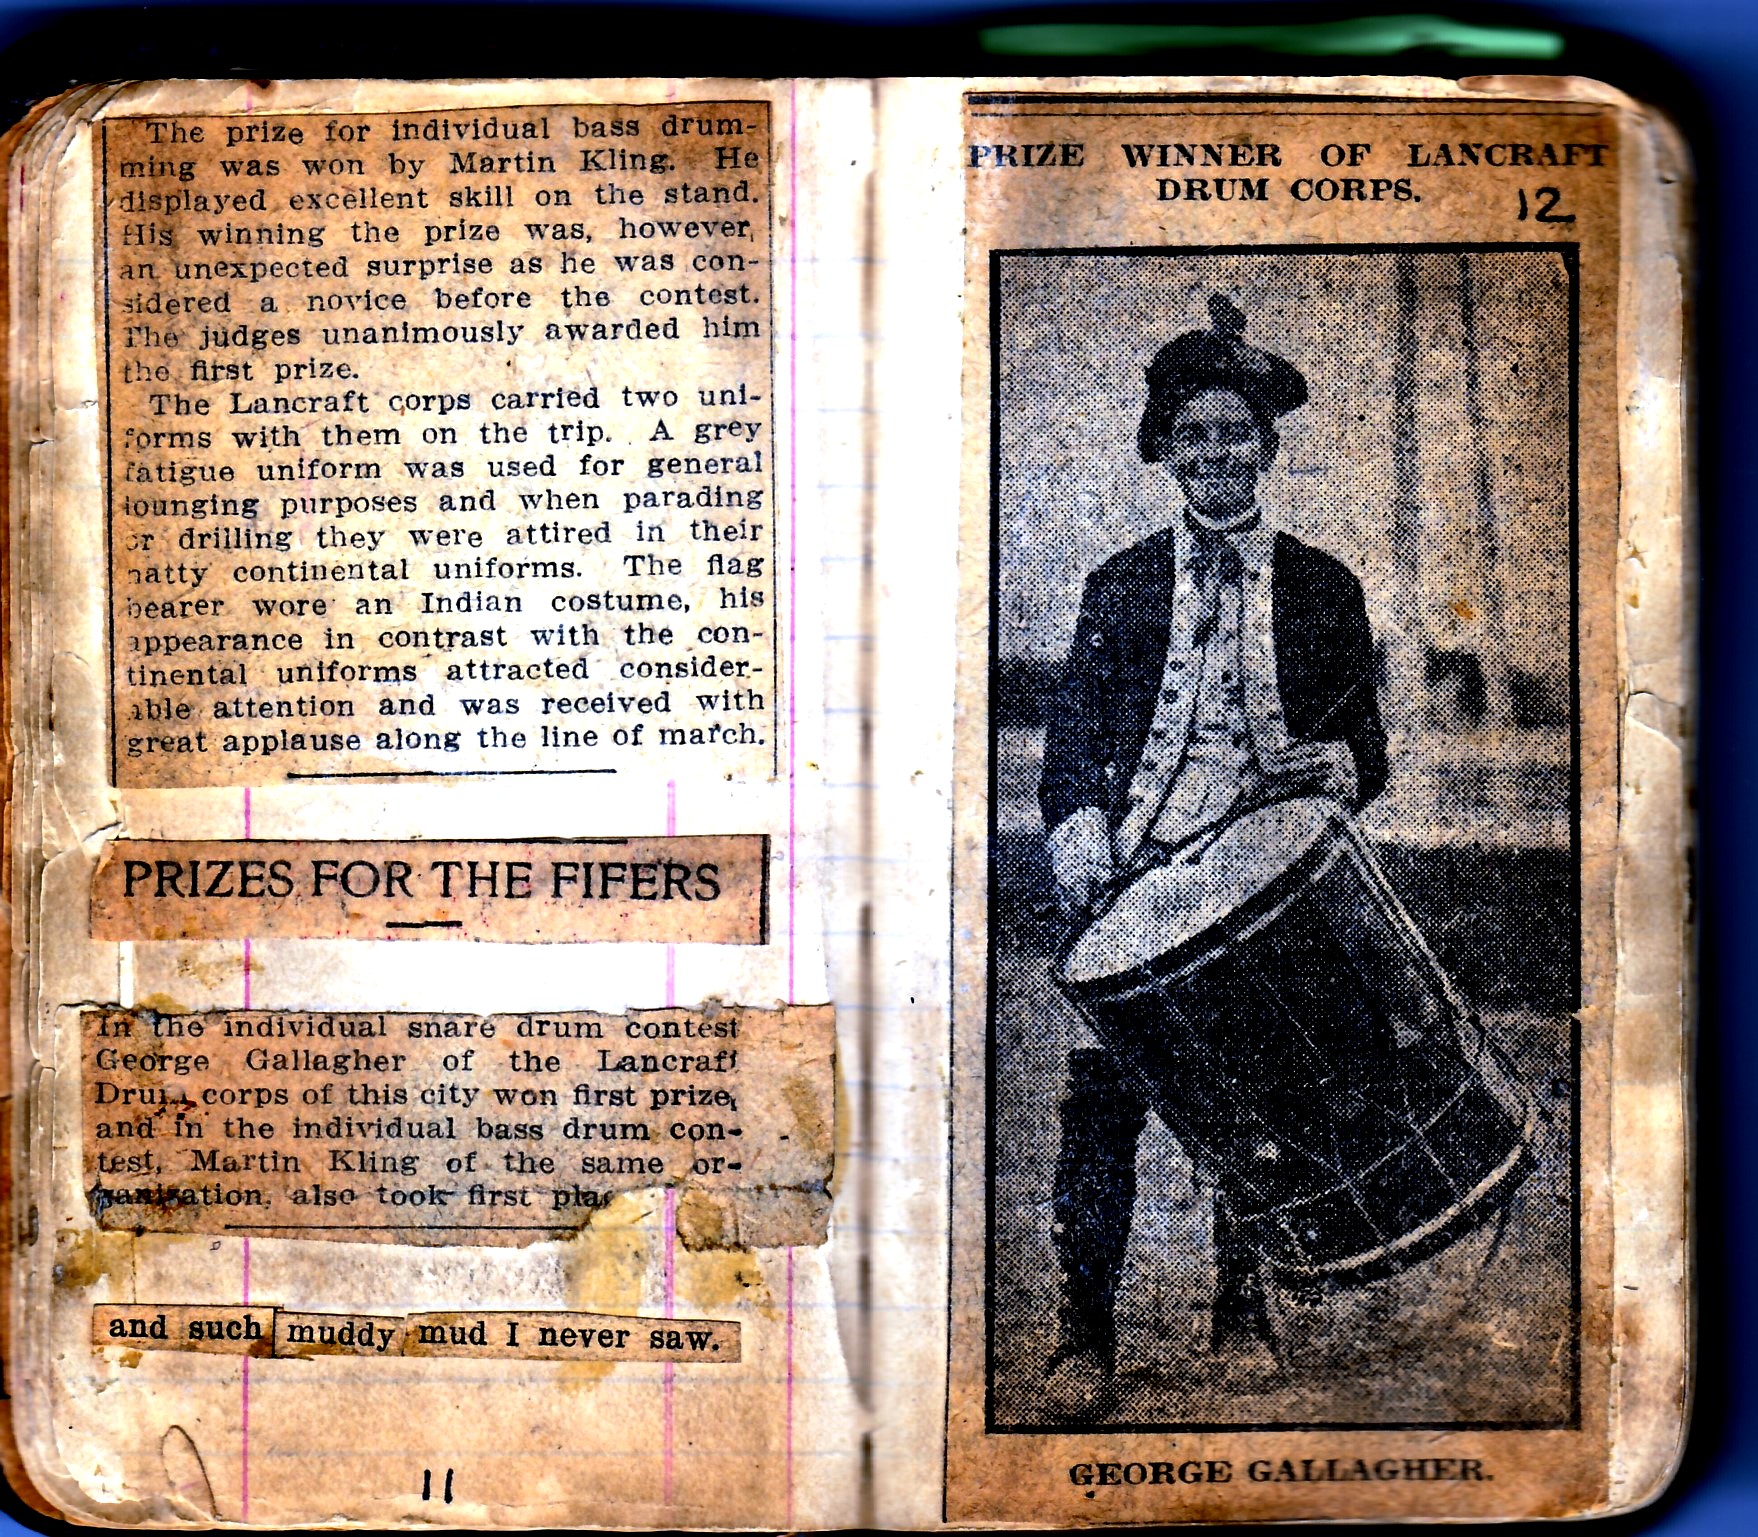 The prize for individual bass drum-
ming was won by Martin Kling. He
displayed excellent skill on the stand.
His winning the prize was, however,
an unexpected surprise as he was con-
sidered a novice before the contest.
The judges unanimously awarded him
the first prize.
The Lancraft corps carried two uni-
forms with them on the trip. A grey
fatigue uniform was used for general
lounging purposes and when parading
or drilling they were attired in their
natty continental uniforms. The flag
bearer wore an Indian costume, his
appearance in contrast with the con-
tinental uniforms attracted consider-
able attention and was received with
great applause along the line of march.
PRIZES FOR THE FIFERS
In the individual snare drum contest
George Gallagher of the Lancraft
Drum corps of this city won first prize,
and in the individual bass drum con-
test, Martin Kling of the same or-
ganization, also took first plac
and such muddy mud I never saw.
11
PRIZE WINNER OF LANCRAFT
DRUM CORPS.
12
GEORGE GALLAGHER.